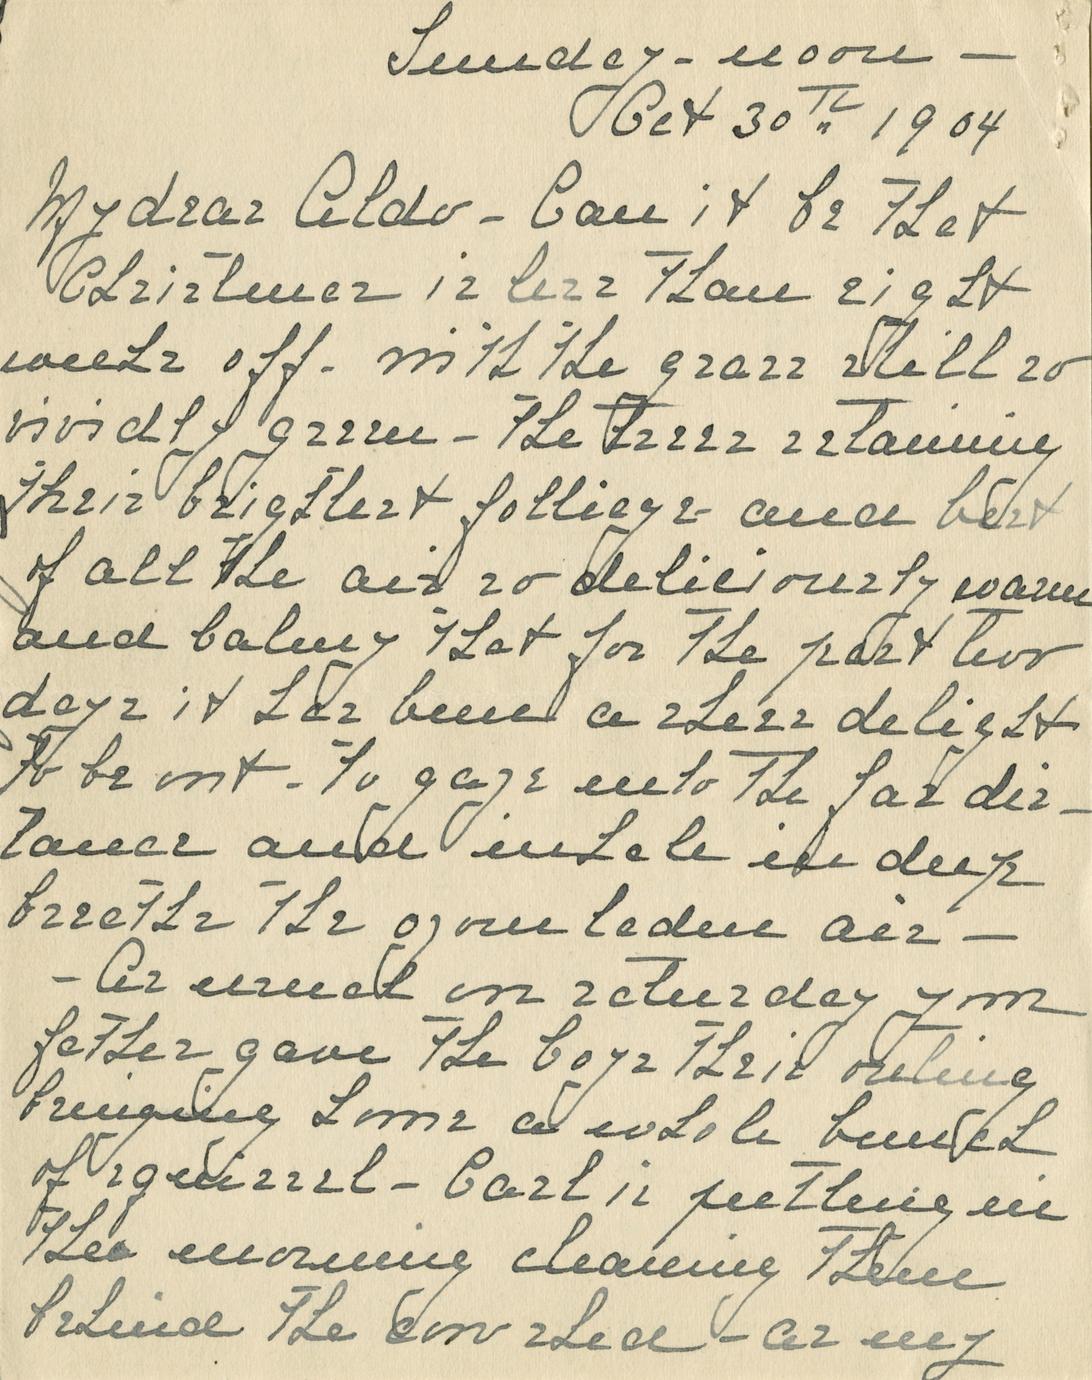 Sunday - noon -
Oct 30th 1904
My dear Aldo - Can it be that
Christmas is less than eight
weeks off. with the grass still so
vividly green - the trees retaining
their brightest folliage and best
of all the air so deliciously warm
and balmy that for the past two
days it has been a sheer delight
to be out - to gaze into the far dis-
tance and inhale in deep
breaths the ozone laden air -
- As usual on saturday your
father gave the boys their outing
bringing home a whole bunch
of squirrel - Carl is putting in
the morning cleaning them
behind the cow shed - as my